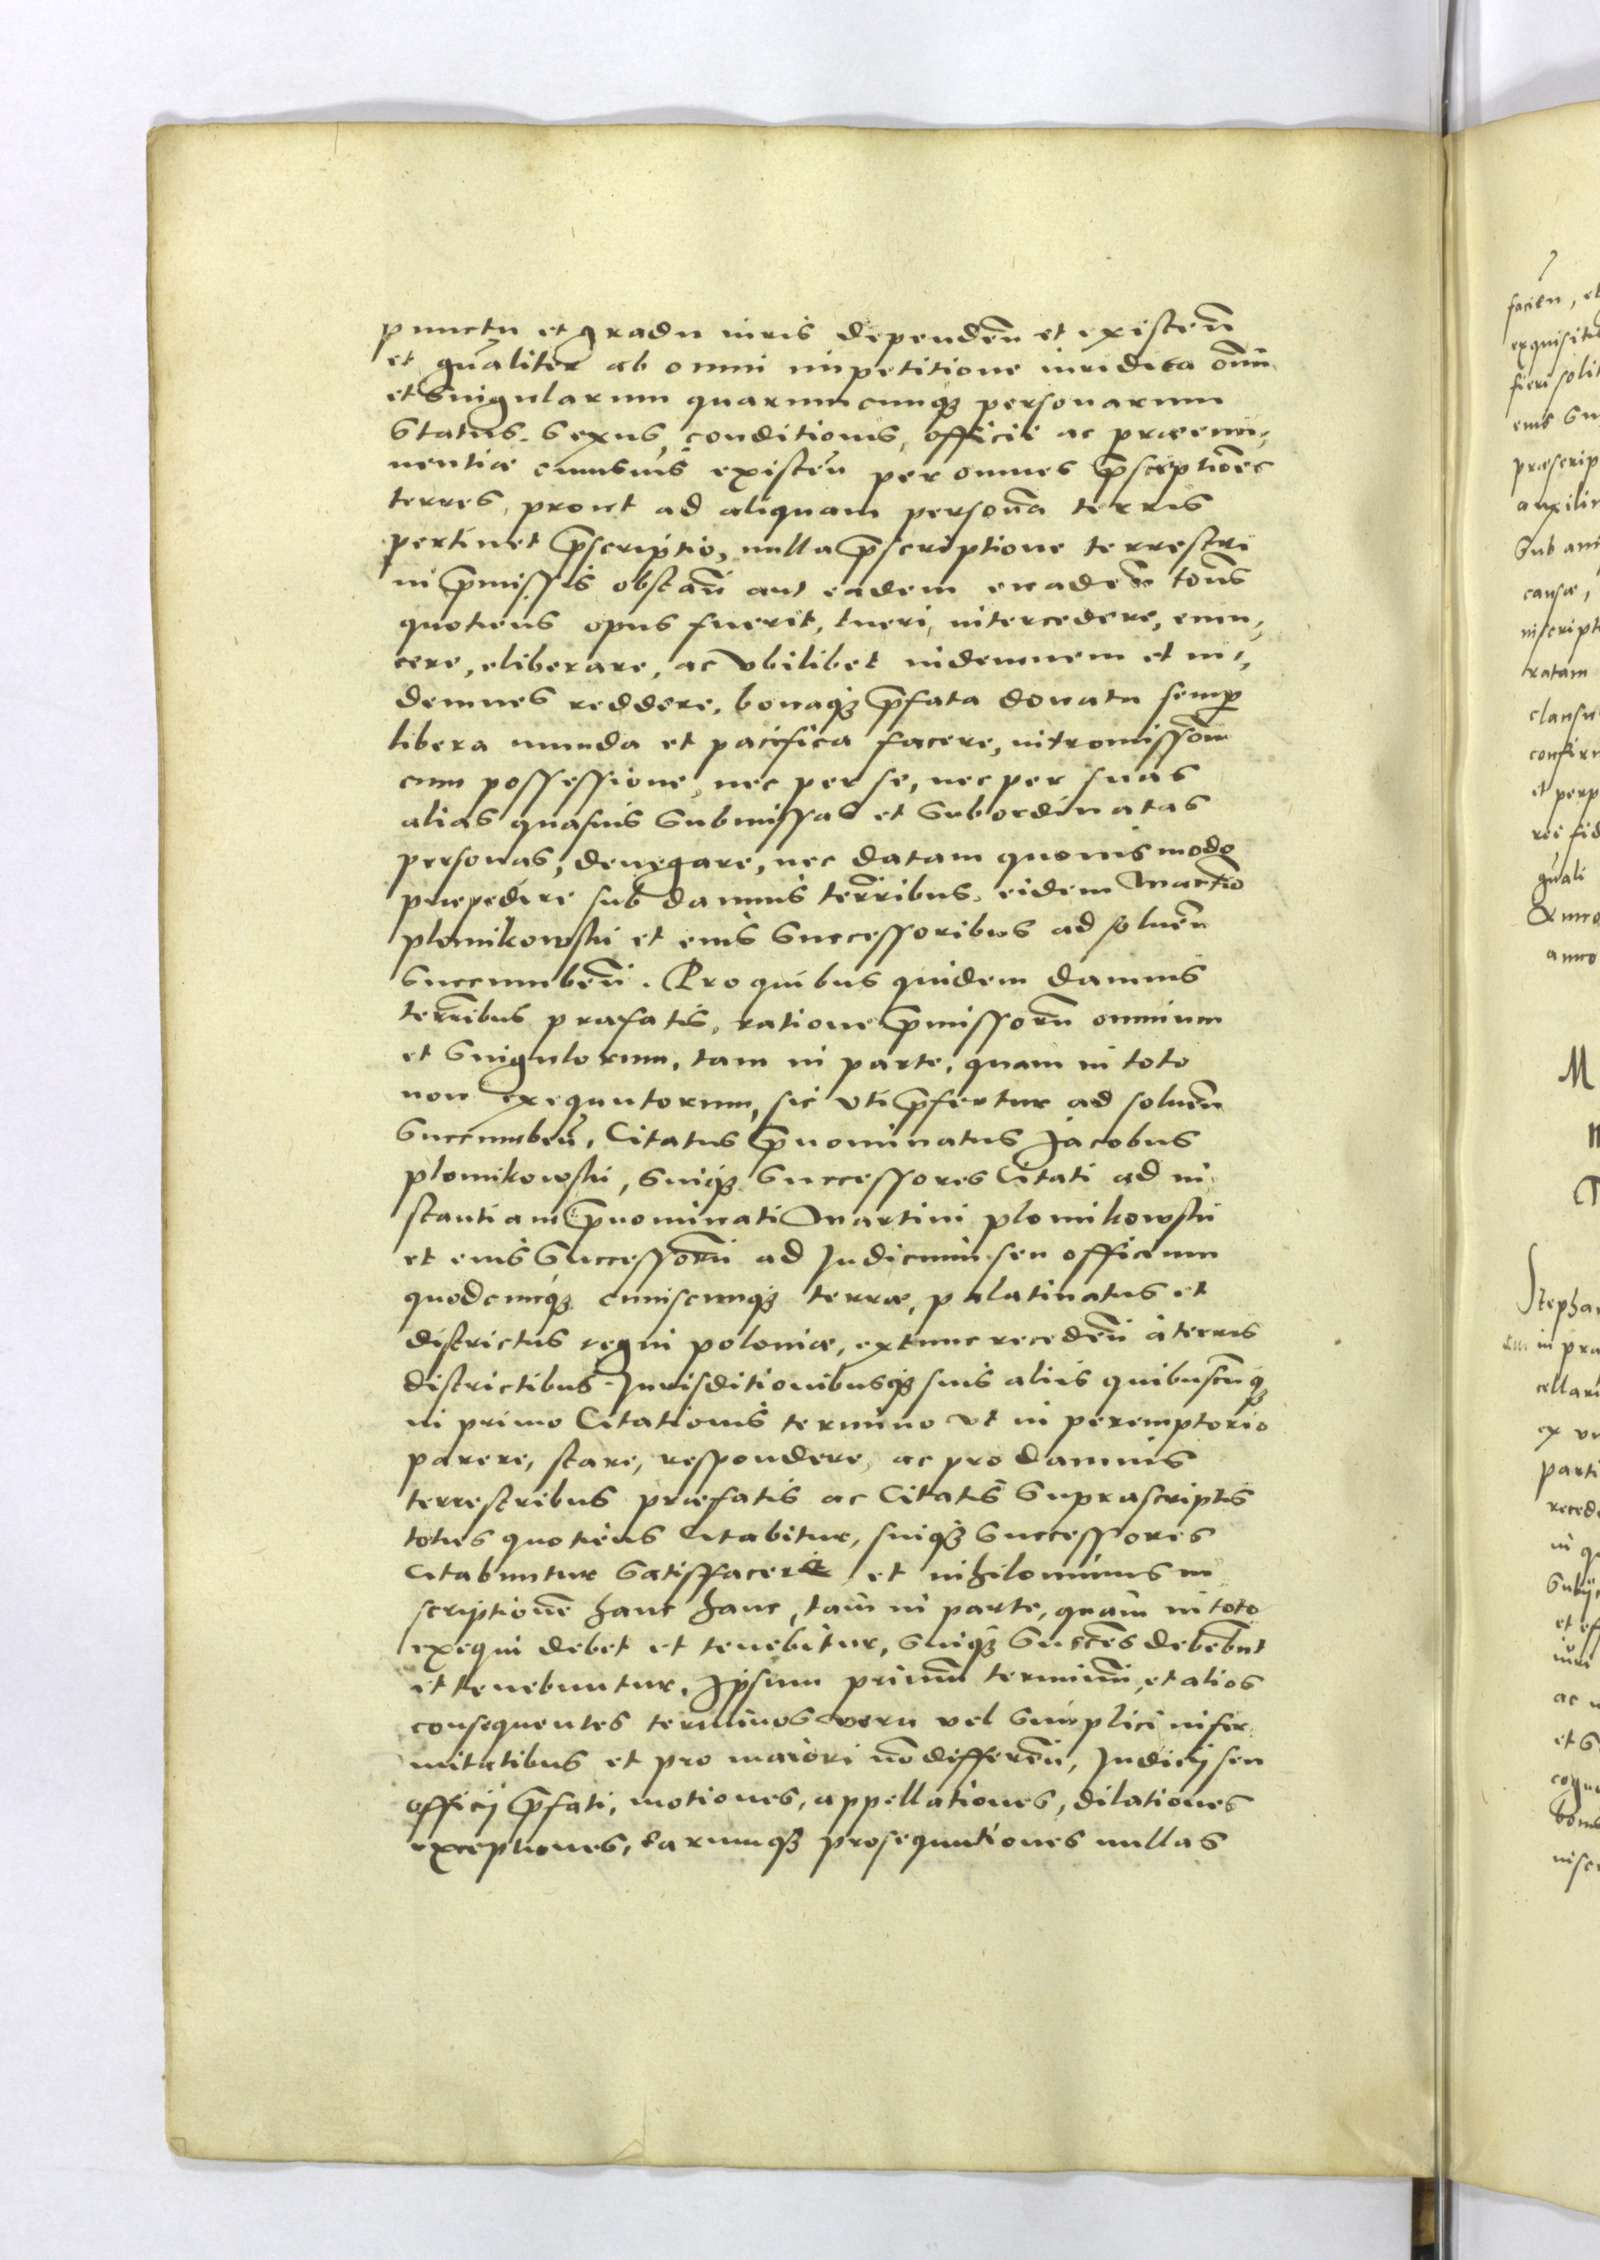 punctu et gradu iuris dependeñ et existeñ
et gñaliter ab omni impetitione iuridica omĩ
et singularum quarumcunqꝫ personarum
status, sexus, conditionis, officii ac præemi„
nentiæ cuiusuis existeñ per omnes p̃scriptiões
terres, prout ad aliquam personã terris
pertinet p̃scriptio, nulla p̃scriptione terrestri
in p̃missis obstañ aut eadem euadẽ totiẽs
quotiens opus fuerit, tueri, intercedere, euin„
cere, eliberare, ac vbilibet indemnem et in„
demnes reddere, bonaqꝫ p̃fata donatu semꝑ
libera munda et pacifica facere, intromissiõm
cum possessione, nec per se, nec per suas
alias quasuis submissas et subordinatas
personas, denegare, nec datam quouis modo
præpedire sub damnis terr̃ribus. eidem Martĩo
plomikowski et eius successoribus ad solueñ
succumbeñ. Pro quibus quidem damnis
terr̃ibus præfatis, ratione p̃missorũ omnium
et singulorum, tam in parte, quam in toto
non exequutorum, sic vti p̃fertur ad solueñ
succumbeñ, Citatus p̃nominatus Jacobus
plomikowski, suiqꝫ successores Citati ad in
stantiam p̃nominati Martini plomikowski
et eius successorũ ad Judicium seu officium
quodcunqꝫ cuiuscunqꝫ terræ, palatinatus et
districtus regni poloniæ, extunc recedeñ à terris
districtibus Jurisditionibusqꝫ suis aliis quibuscũqꝫ
in primo Citationis termino vt in peremptorio
parere, stare, respondere, ac pro damnis
terrestribus præfatis ac Citatis suprascriptis
toties quotiens citabitur, suiqꝫ successores
citabuntur satisfacere, et nihilominus in
scriptionẽ hanc hanc, tam in parte, quam in toto
exequi debet et tenebitur, suiqꝫ succẽs debebũt
et tenebuntur. Ipsum primũ terminũ, et alios
consequentes terminos vera vel simplici infir
mitatibus et pro maiori nõ differeñ, Judicij seu
officij p̃fati, motiones, appellationes, dilationes
exceptiones, earumqꝫ prosequutiones nullas